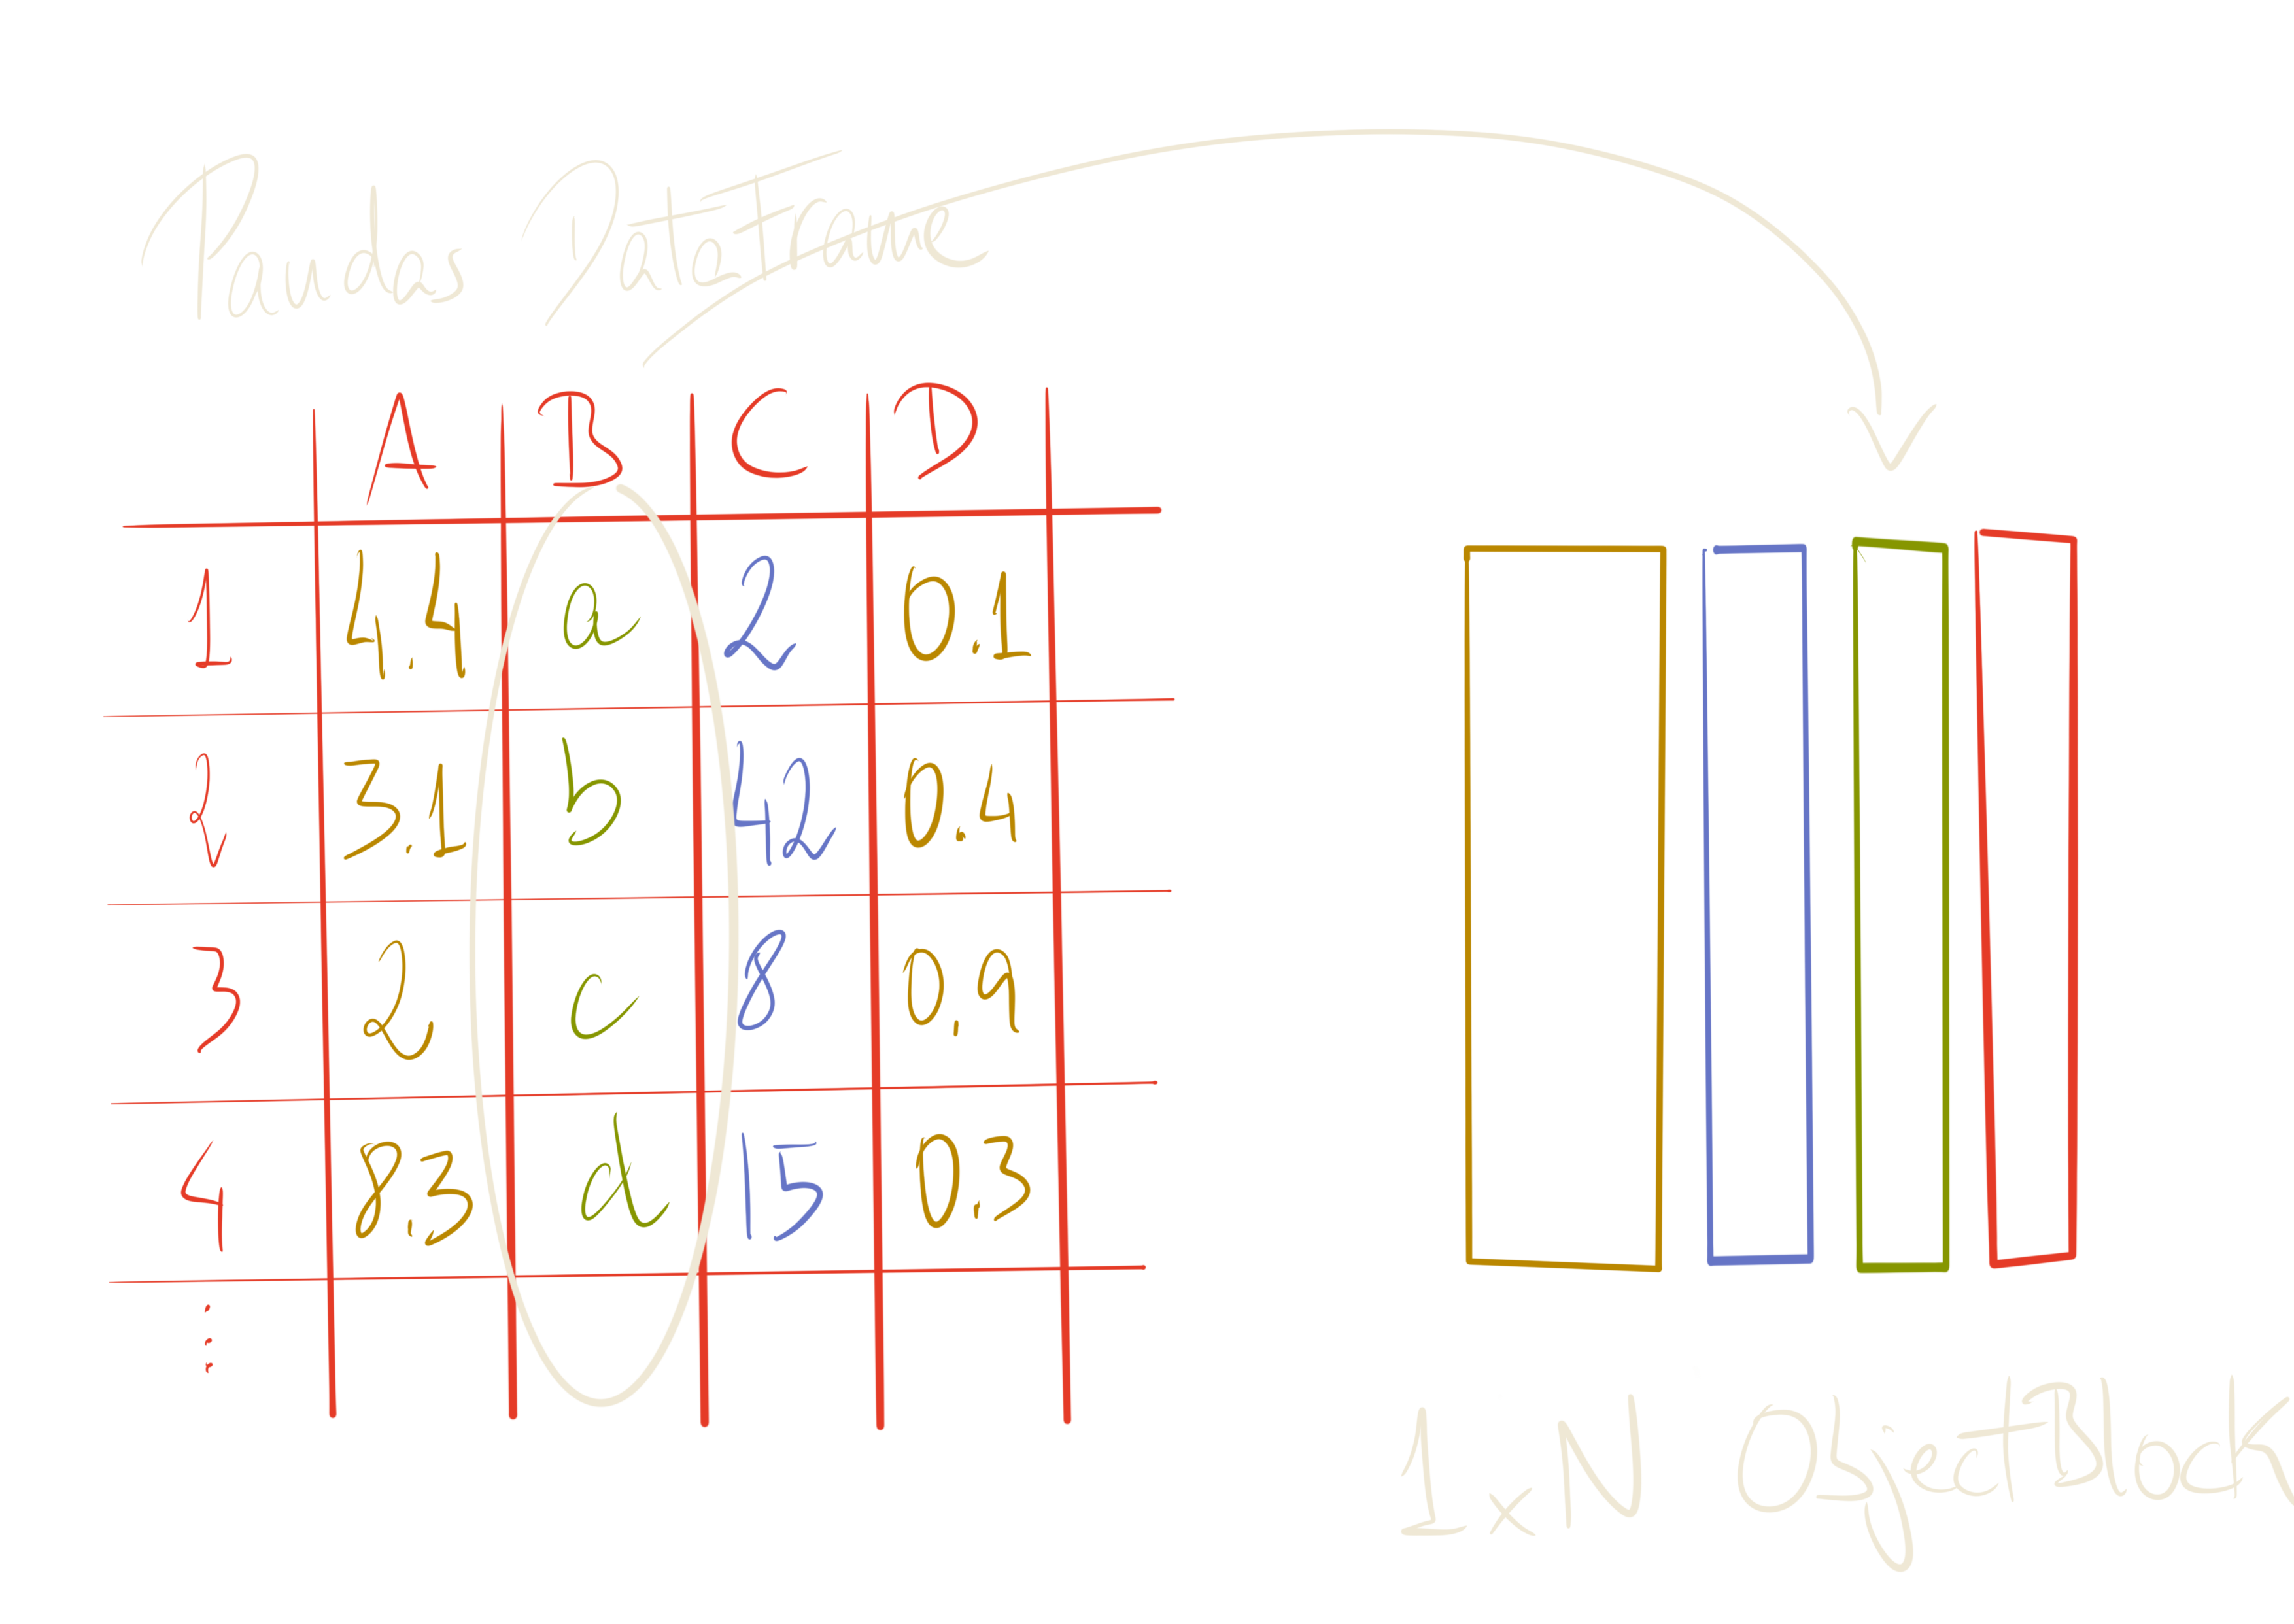 Pandas DataFrame
A B C D
1 4.4 a 2 0.1
2 3.1 b 42 0.4
3 2. c 8 0.9
4 8.3 d 15 0.3
⋮
1xN ObjectBlock